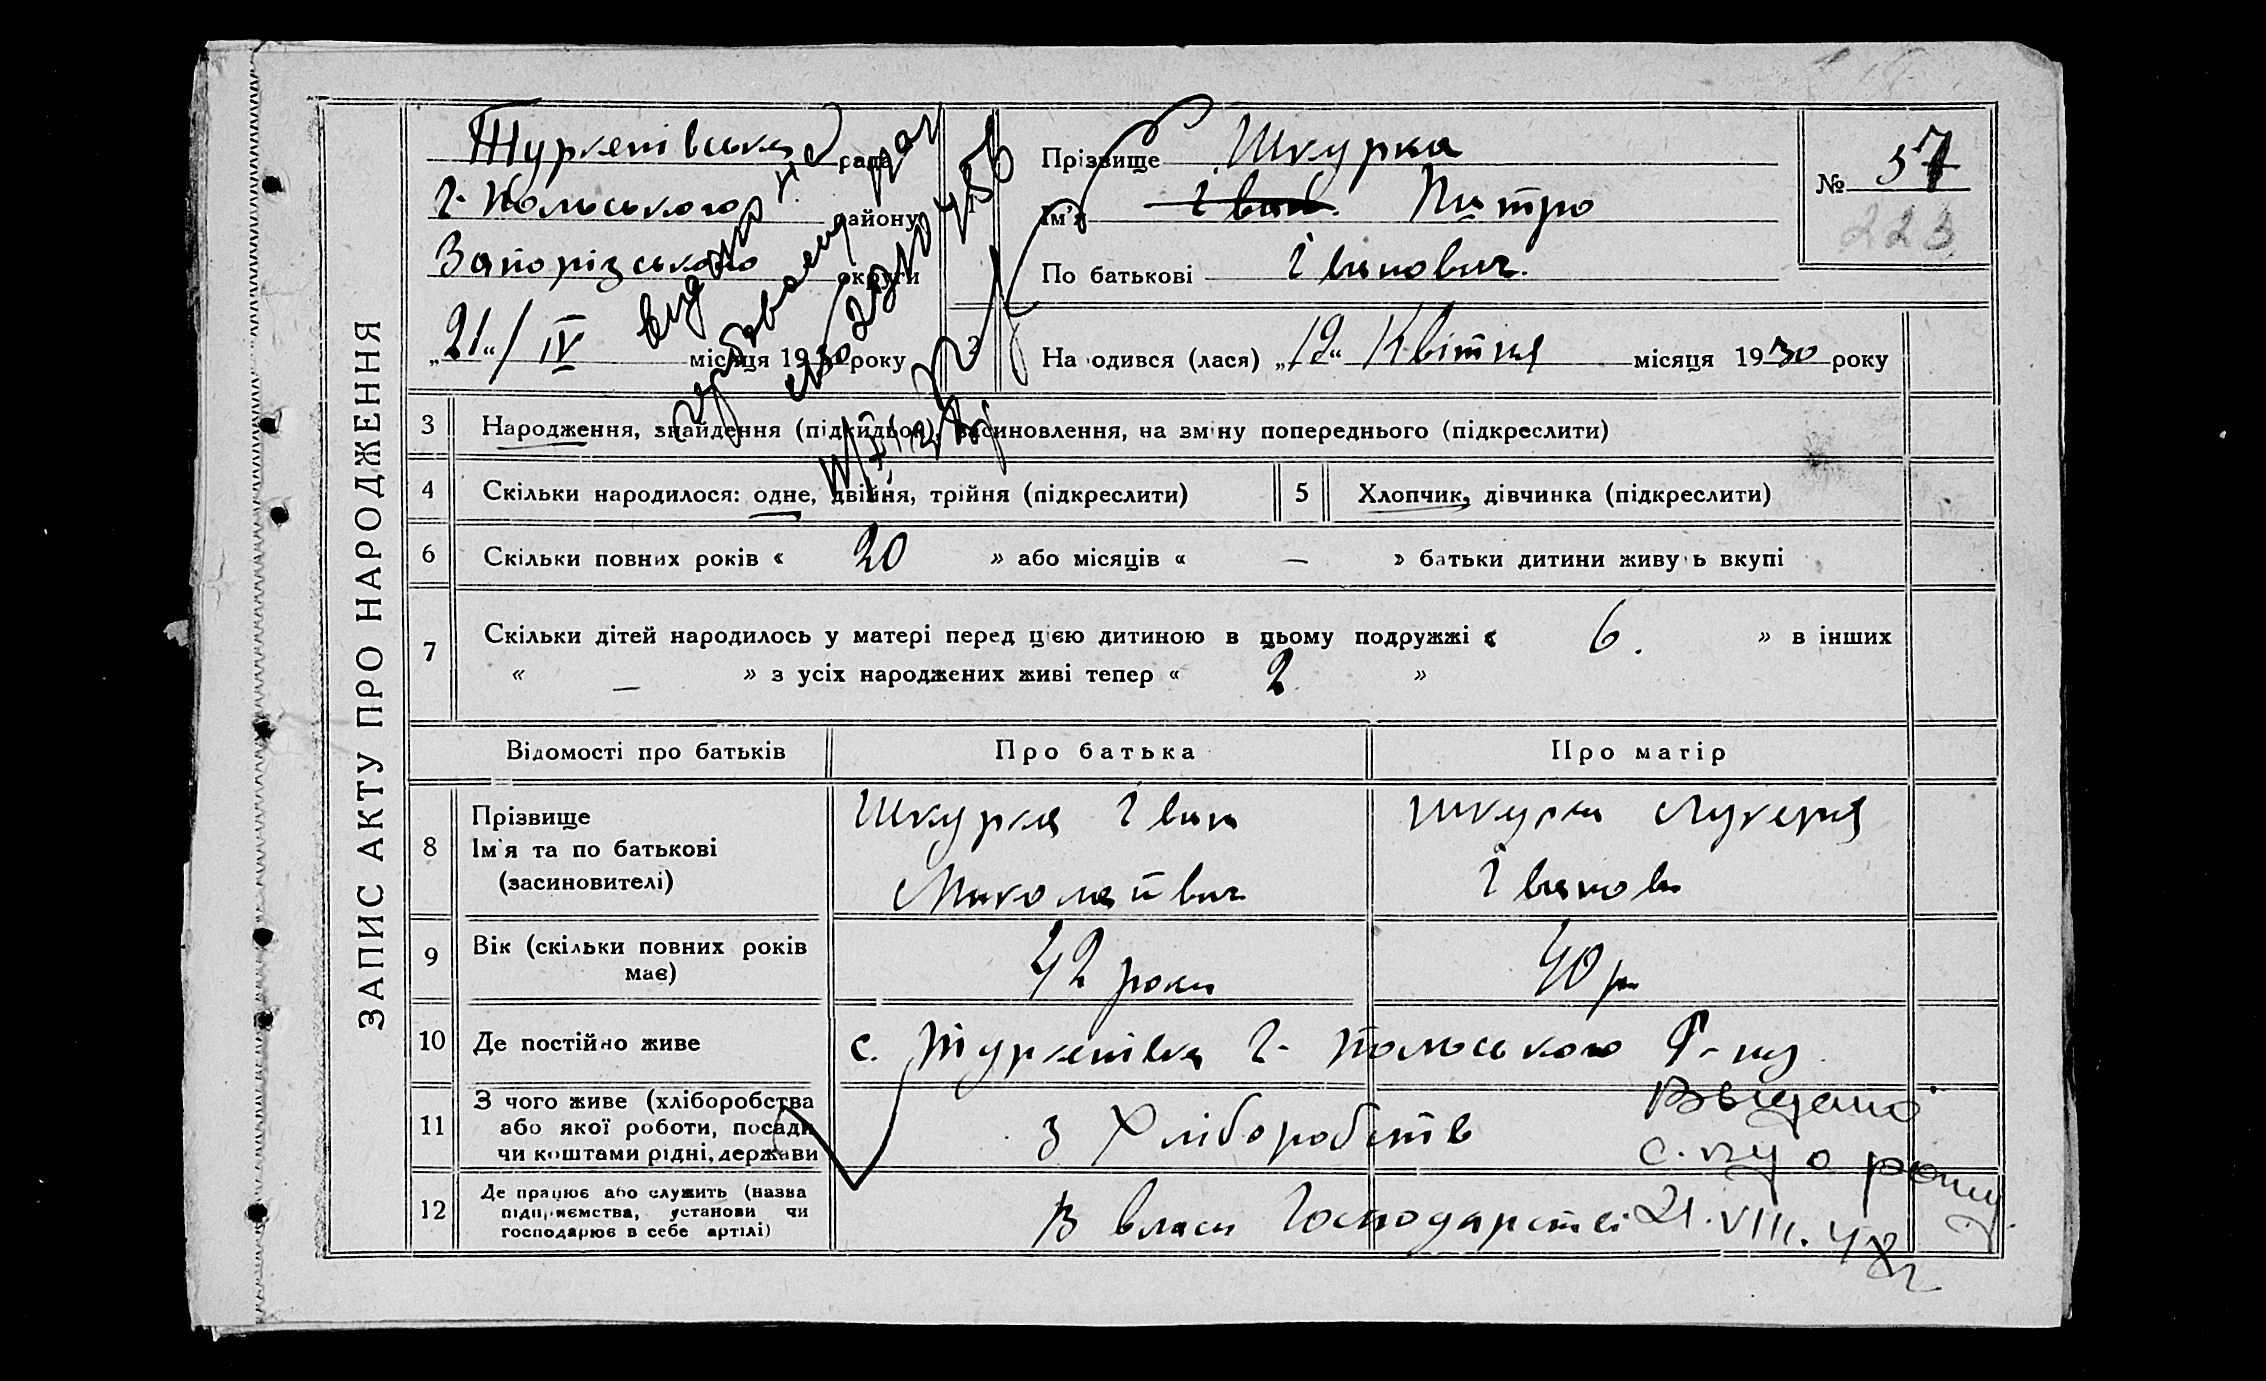 ЗАПИС АКТУ ПРО НАРОДЖЕННЯ
Туркенівська рада
Г-Польського району
Запорізького округи
„21“/IV місяця 1930 року
1
Прізвище Шкурка
Ім'я Іван. Питро
По батькові Іванович.
№ 57
223
2
Народився (лася) „12“ Квітня місяця 1930 року
3 Народження, знайдення (підкидьок), засиновлення, на зміну попереднього (підкреслити)
4 Скільки народилося: одне, двійня, трійня (підкреслити) 5 Хлопчик, дівчинка (підкреслити)
6 Скільки повних років « 20 » або місяців « — » батьки дитини живуть вкупі
7 Скільки дітей народилось у матері перед цією дитиною в цьому подружжі « 6. » в інших
« — » з усіх народжених живі тепер « 2 »
Відомості про батьків Про батька Про матір
8 Прізвище
Ім'я та по батькові
(засиновителі)
Шкурка Іван
Миколайвич
Шкурка Лукеря
Іванов
9 Вік (скільки повних років
має)
42 роки
40 р
10 Де постійно живе с. Туркенівка Г-Польського Р-ну
11 З чого живе (хліборобства
або якої роботи, посади
чи коштами рідні, держави
з Хліборобств
12 Де працює або служить (назва
підприємства, установи чи
господарює в себе артілі)
В власн Господарстві
21. VIII.